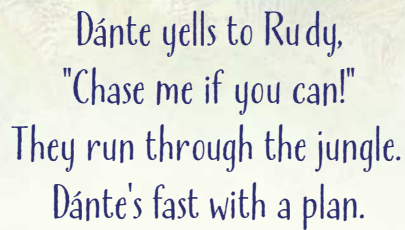 Dánte yells to Rudy,
"Chase me if you can!"
They run through the jungle.
Dánte's fast with a plan.